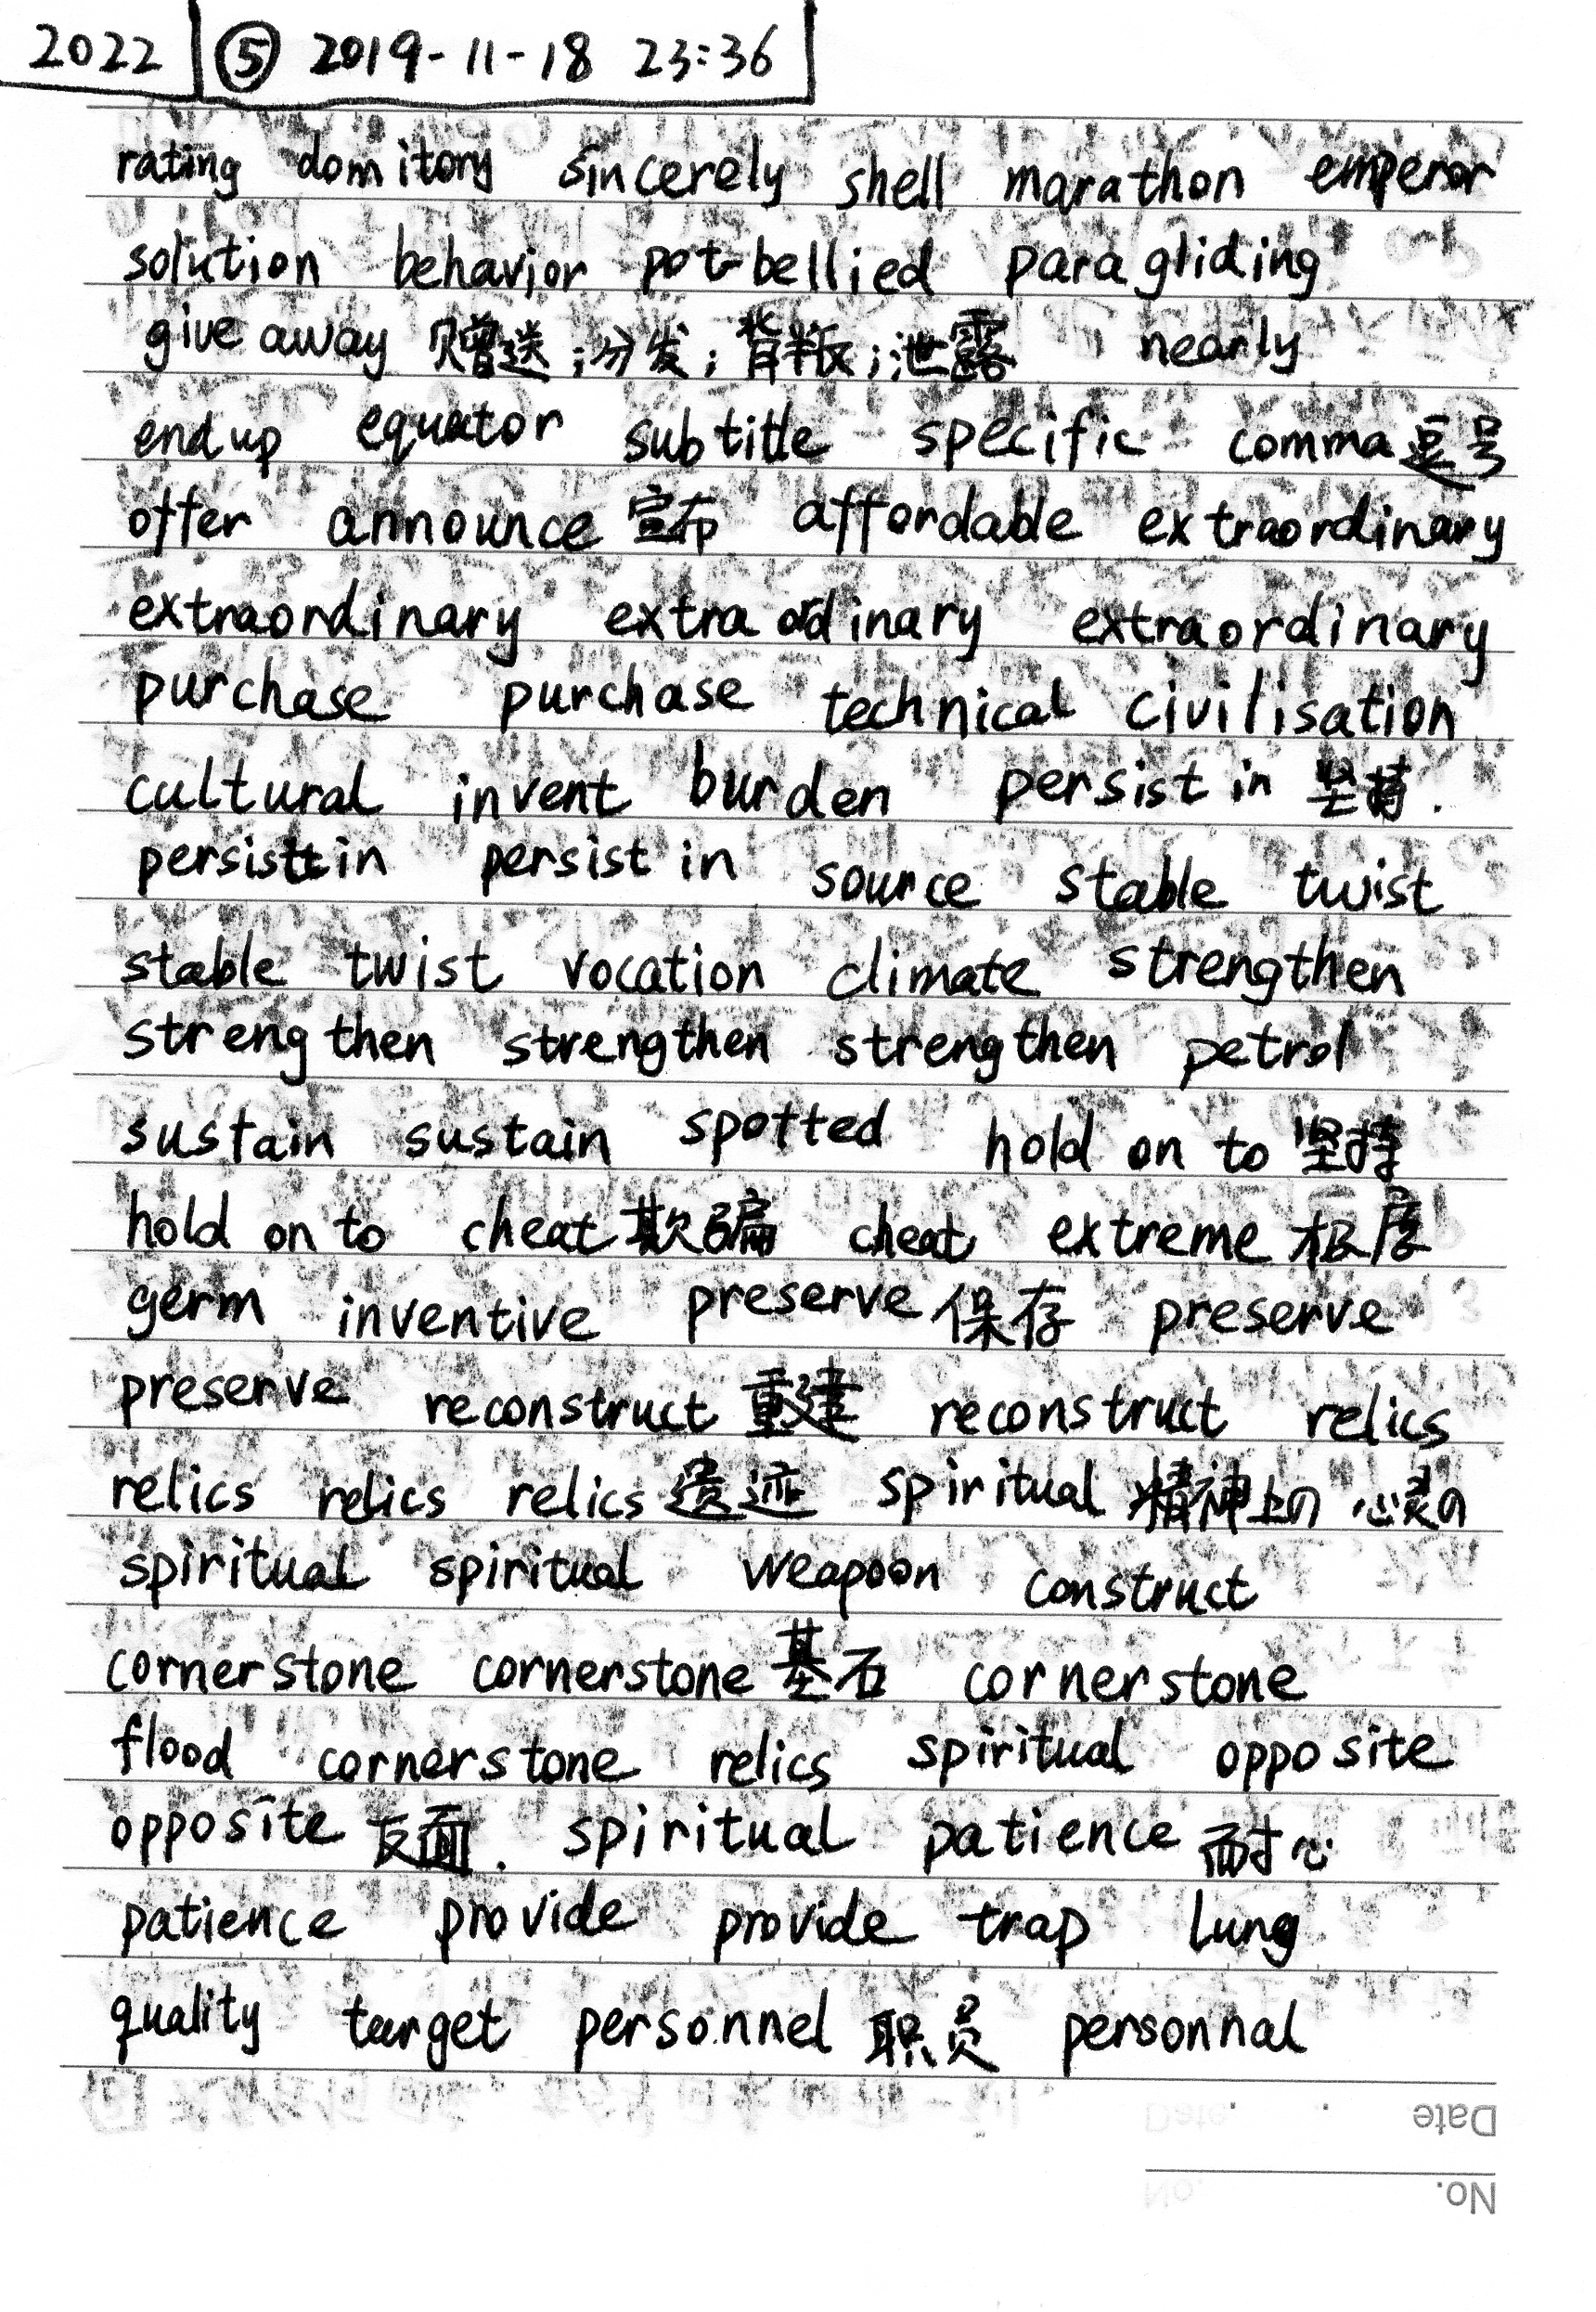 2022 ⑤ 2019-11-18 23:36
rating domitory sincerely shell marathon emperor
solution behavior pot-bellied paragliding
give away 赠送;分发;背叛;泄露 nearly
end up equator subtitle specific comma逗号
offer announce 宣布 affordable extraordinary
extraordinary extraordinary extraordinary
purchase purchase technical civilisation
cultural invent burden persist in 坚持.
persist in persist in source stable twist
stable twist vocation climate strengthen
strengthen strengthen strengthen petrol
sustain sustain spotted hold on to 坚持
hold on to cheat 欺骗 cheat extreme 极度
germ inventive preserve 保存 preserve
preserve reconstruct 重建 reconstruct relics
relics relics relics 遗迹 spiritual 精神上の 心灵の
spiritual spiritual weapoon construct
cornerstone cornerstone 基石 cornerstone
flood cornerstone relics spiritual opposite
opposite 反面. spiritual patience 耐心
patience provide provide trap lung
quality target personnel 职员 personnal
Date
No.